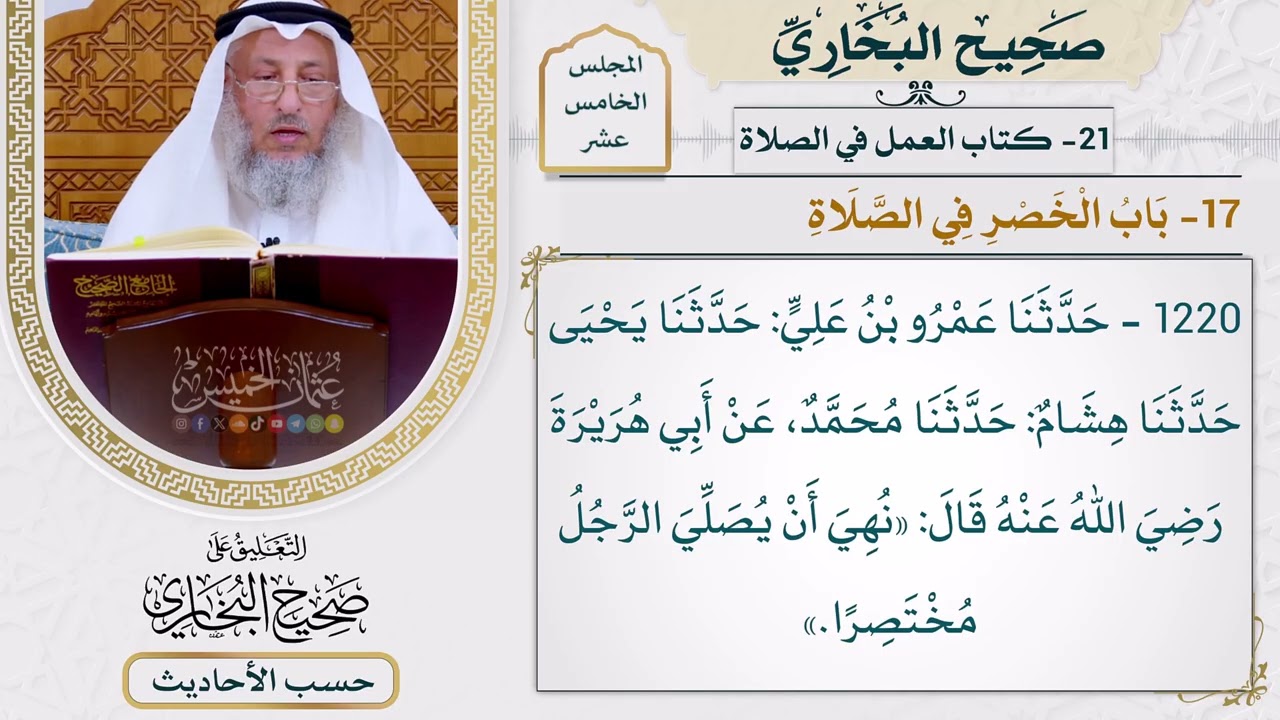 صَحِيح البُخَارِيِّ
المجلس
الخامس
عشر
21- كتاب العمل في الصلاة
17- بَابُ الْخَصْرِ فِي الصَّلَاةِ
1220 - حَدَّثَنَا عَمْرُو بْنُ عَلِيٍّ: حَدَّثَنَا يَحْيَى
حَدَّثَنَا هِشَامٌ: حَدَّثَنَا مُحَمَّدٌ، عَنْ أَبِي هُرَيْرَةَ
رَضِيَ اللهُ عَنْهُ قَالَ: «نُهِيَ أَنْ يُصَلِّيَ الرَّجُلُ
مُخْتَصِرًا.»
الجامع الصحيح
عُثمان الخميس
التَّعليقُ عَلَى
صَحِيح البُخَاري
حسب الأحاديث